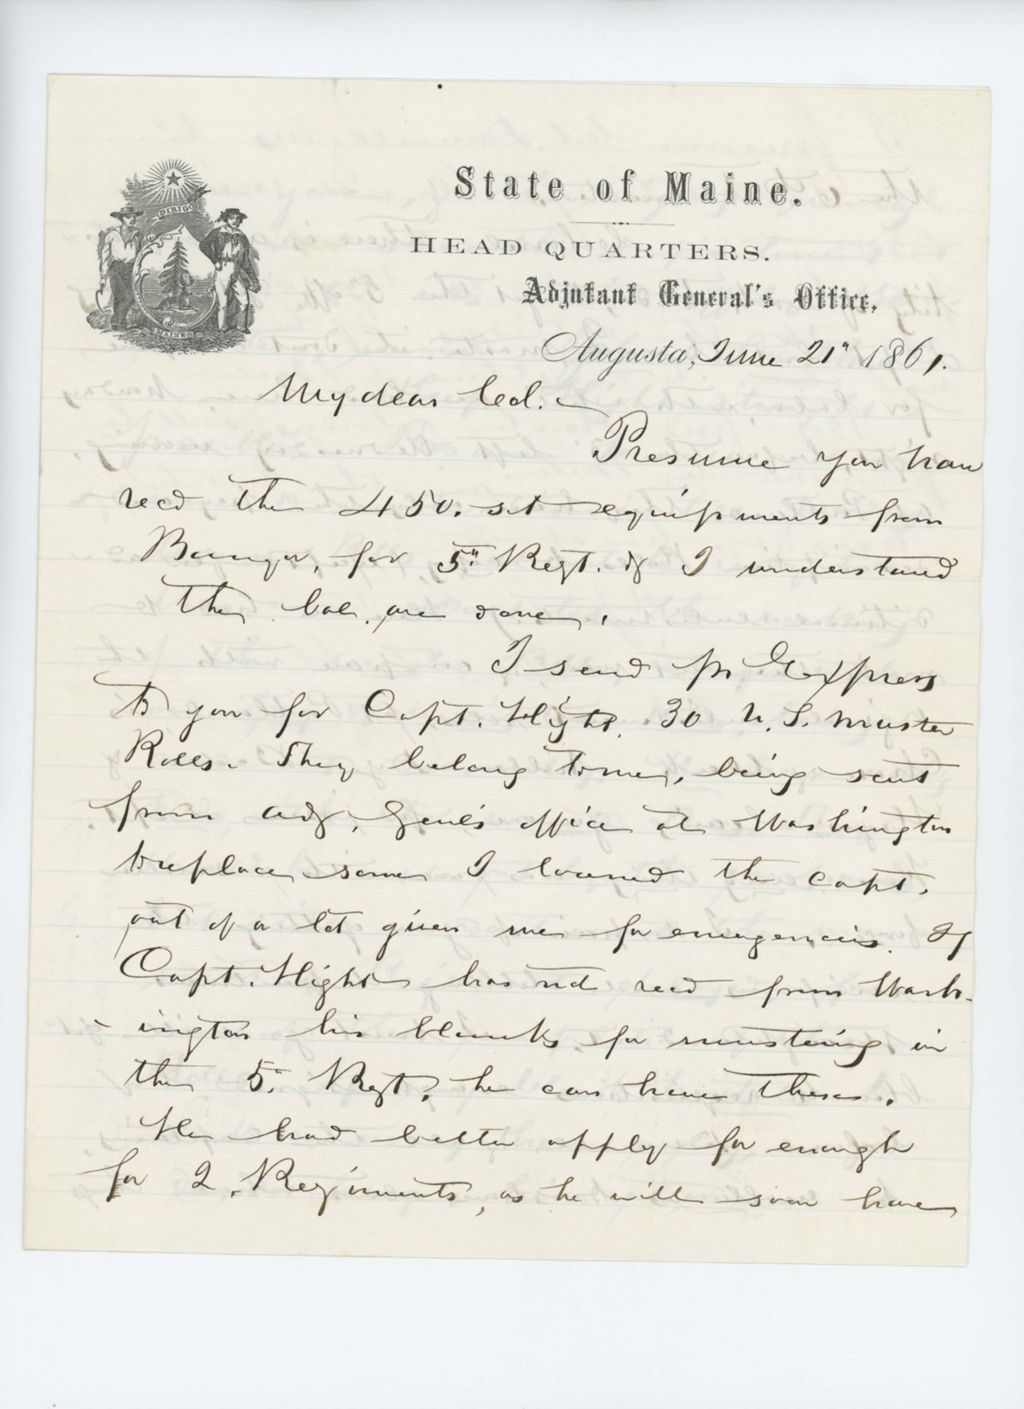 DIRIGO
MAINE
State of Maine.
HEAD QUARTERS.
Adjutant General's Office,
Augusta, June 21" 1861.
My dear Col. —
Presume you have
recd the 450. set equipments from
Bangor, for 5" Regt. & I understand
the bal. are done.
I send pr Express
to you for Capt. Hight. 30 U.S. Muster
Rolls. They belong to me, being sent
from adj. Genl's office at Washington
to replace some I loaned the Capt.
out of a lot given me for emergencies. If
Capt. Hight has not recd from Wash-
-ington his blanks for mustering in
the 5" Regt, he can have these.
He had better apply for enough
for 2, Regiments, as he will soon have